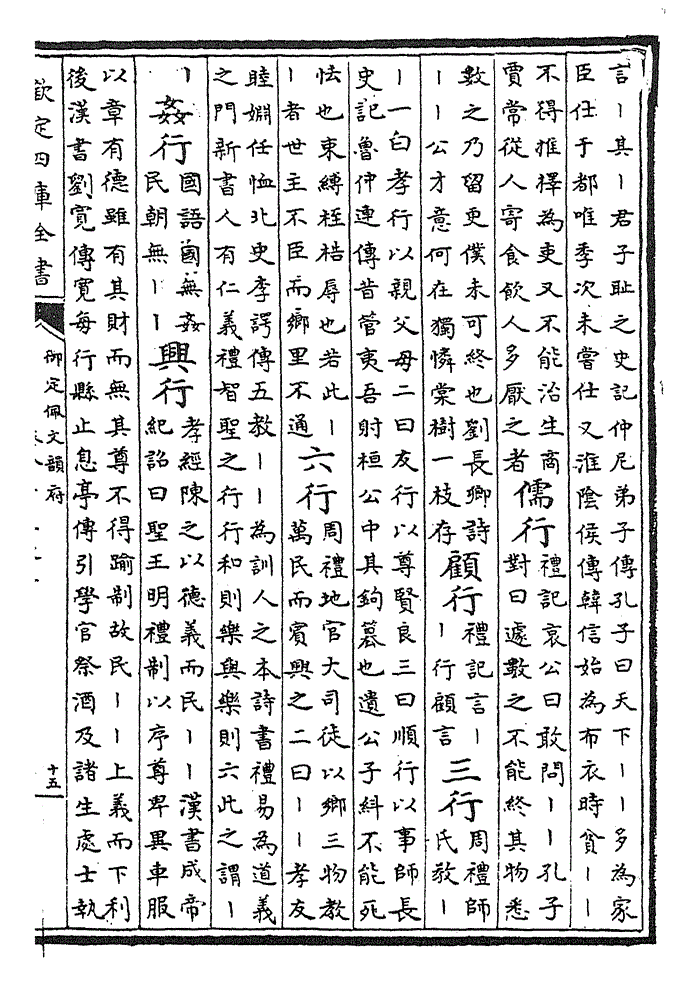 言丨其丨君子恥之史記仲尼弟子傳孔子曰天下丨丨多為家
臣仕于都唯季次未嘗仕又淮陰侯傳韓信始為布衣時貧丨丨
不得推擇為吏又不能治生商
賈常從人寄食飲人多厭之者
儒行
禮記哀公曰敢問丨丨孔子
對曰遽數之不能終其物悉
數之乃留更僕未可終也劉長卿詩
丨丨公才意何在獨憐棠樹一枝存
顧行
禮記言丨
丨行顧言
三行
周禮師
氏敎丨
丨一曰孝行以親父母二曰友行以尊賢良三曰順行以事師長
史記魯仲連傳昔管夷吾射桓公中其鉤簒也遺公子糾不能死
怯也束縛桎梏辱也若此丨
丨者世主不臣而鄉里不通
六行
周禮地官大司徒以鄉三物教
萬民而賓興之二曰丨丨孝友
睦婣任恤北史李諤傳五教丨丨為訓人之本詩書禮易為道義
之門新書人有仁義禮智聖之行行和則樂與樂則六此之謂丨
丨
姦行
國語國無姦
民朝無丨丨
興行
孝經陳之以德義而民丨丨漢書成帝
紀詔曰聖王明禮制以序尊卑異車服
以章有德雖有其財而無其尊不得踰制故民丨丨上義而下利
後漢書劉寛傳寛每行縣止息亭傳引學官祭酒及諸生處士執
欽定四庫全書
御定佩文韻府
十五